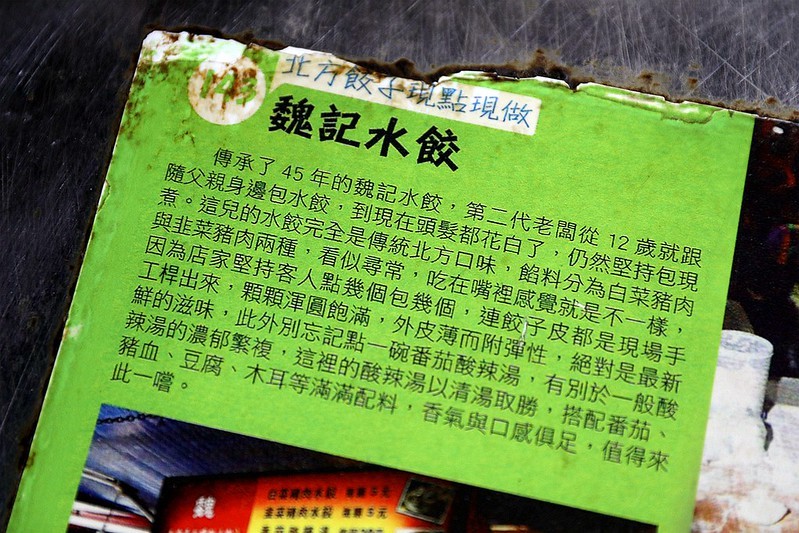 143
北方餃子現點現做
魏記水餃
傳承了 45 年的魏記水餃，第二代老闆從 12 歲就跟
隨父親身邊包水餃，到現在頭髮都花白了，仍然堅持包現
煮。這兒的水餃完全是傳統北方口味，餡料分為白菜豬肉
與韭菜豬肉兩種，看似尋常，吃在嘴裡感覺就是不一樣，
因為店家堅持客人點幾個包幾個，連餃子皮都是現場手
工桿出來，顆顆渾圓飽滿，外皮薄而附彈性，絕對是最新
鮮的滋味，此外別忘記點一碗番茄酸辣湯，有別於一般酸
辣湯的濃郁繁複，這裡的酸辣湯以清湯取勝，搭配番茄、
豬血、豆腐、木耳等滿滿配料，香氣與口感俱足，值得來
此一嚐。
魏
白菜豬肉水餃 每顆5元
韭菜豬肉水餃 每顆5元